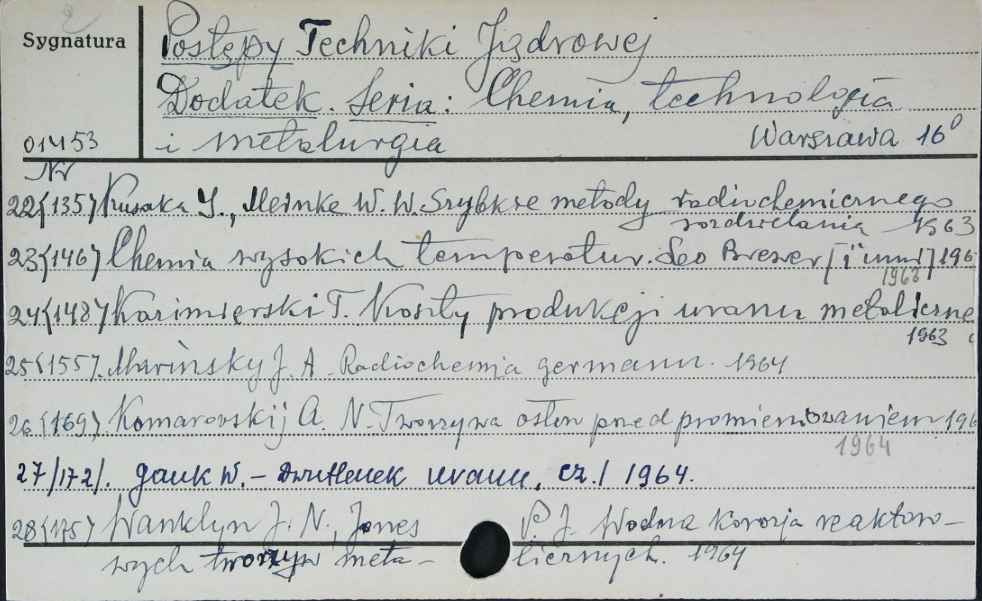 Sygnatura
Postępy Techniki Jądrowej
Dodatek. Seria: Chemia, technologia
01453 i metalurgia Warszawa 16⁰
Nr
22(135) Kusaka Y., Meinke W. W. Szybkie metody radiochemicznego
rozdzielania 1963
23(146) Chemia wysokich temperatur. Leo Brewer [i inni] 196
1963
24(148) Kazimierski T. Koszty produkcji uranu metaliczne
1963
25(155). Marinsky J. A. Radiochemia germanu. 1964
26(169). Komarovskij A. N. Tworzywa osłon przed promieniowaniem 196
1964
27/172/. Gauk W. – Dwutlenek uranu, cz. I 1964.
28(175) Wanklyn J. N., Jones P. J. Wodna korozja reaktoro–
wych tworzyw meta– licznych. 1964